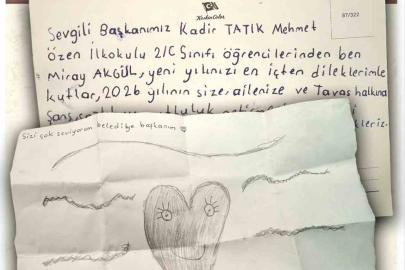 KardeşCeler
87/322
Sevgili Başkanımız Kadir TATIK Mehmet
Özen İlkokulu 2/C Sınıfı öğrencilerinden ben
Miray AKGÜL, yeni yılınızı en içten dileklerimle
kutlar, 2026 yılının size, ailenize ve Tavas halkına
Şans,
Sizi çok seviyorum belediye başkanım